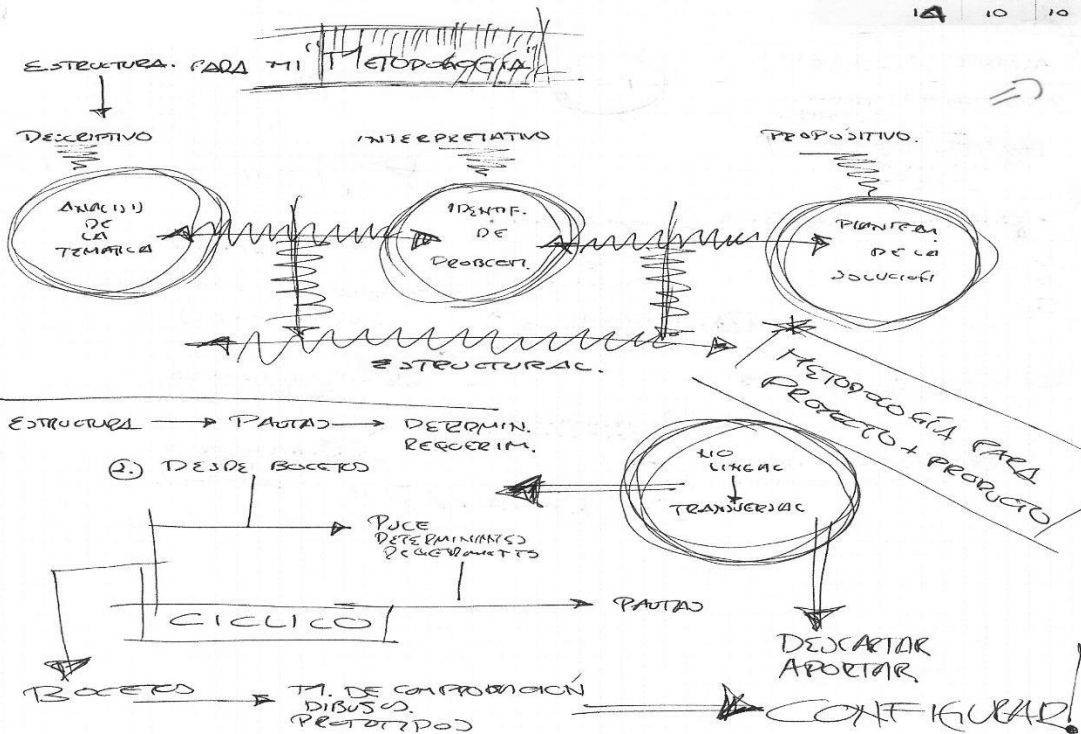 10 10
ESTRUCTURA. PARA MI "METODOLOGÍA"
DESCRIPTIVO
INTERPRETATIVO
PROPOSITIVO.
ANALISIS
DE
LA
TEMATICA
IDENTIF.
DE
PROBLEM.
PLANTEAM.
DE LA
SOLUCION
ESTRUCTURAL.
METODOLOGÍA PARA
PROYECTO + PRODUCTO
ESTRUCTURA → PAUTAS → DETERMIN.
REQUERIM.
2.) DESDE BOCETOS
NO
LINEAL
TRANSVERSAL
DETERMINANTES
PAUTAS
CICLICO
DESCARTAR
APORTAR.
BOCETOS
M. DE COMPROBACIÓN
DIBUJOS.
PROTOTIPOS
CONFIGURAR!